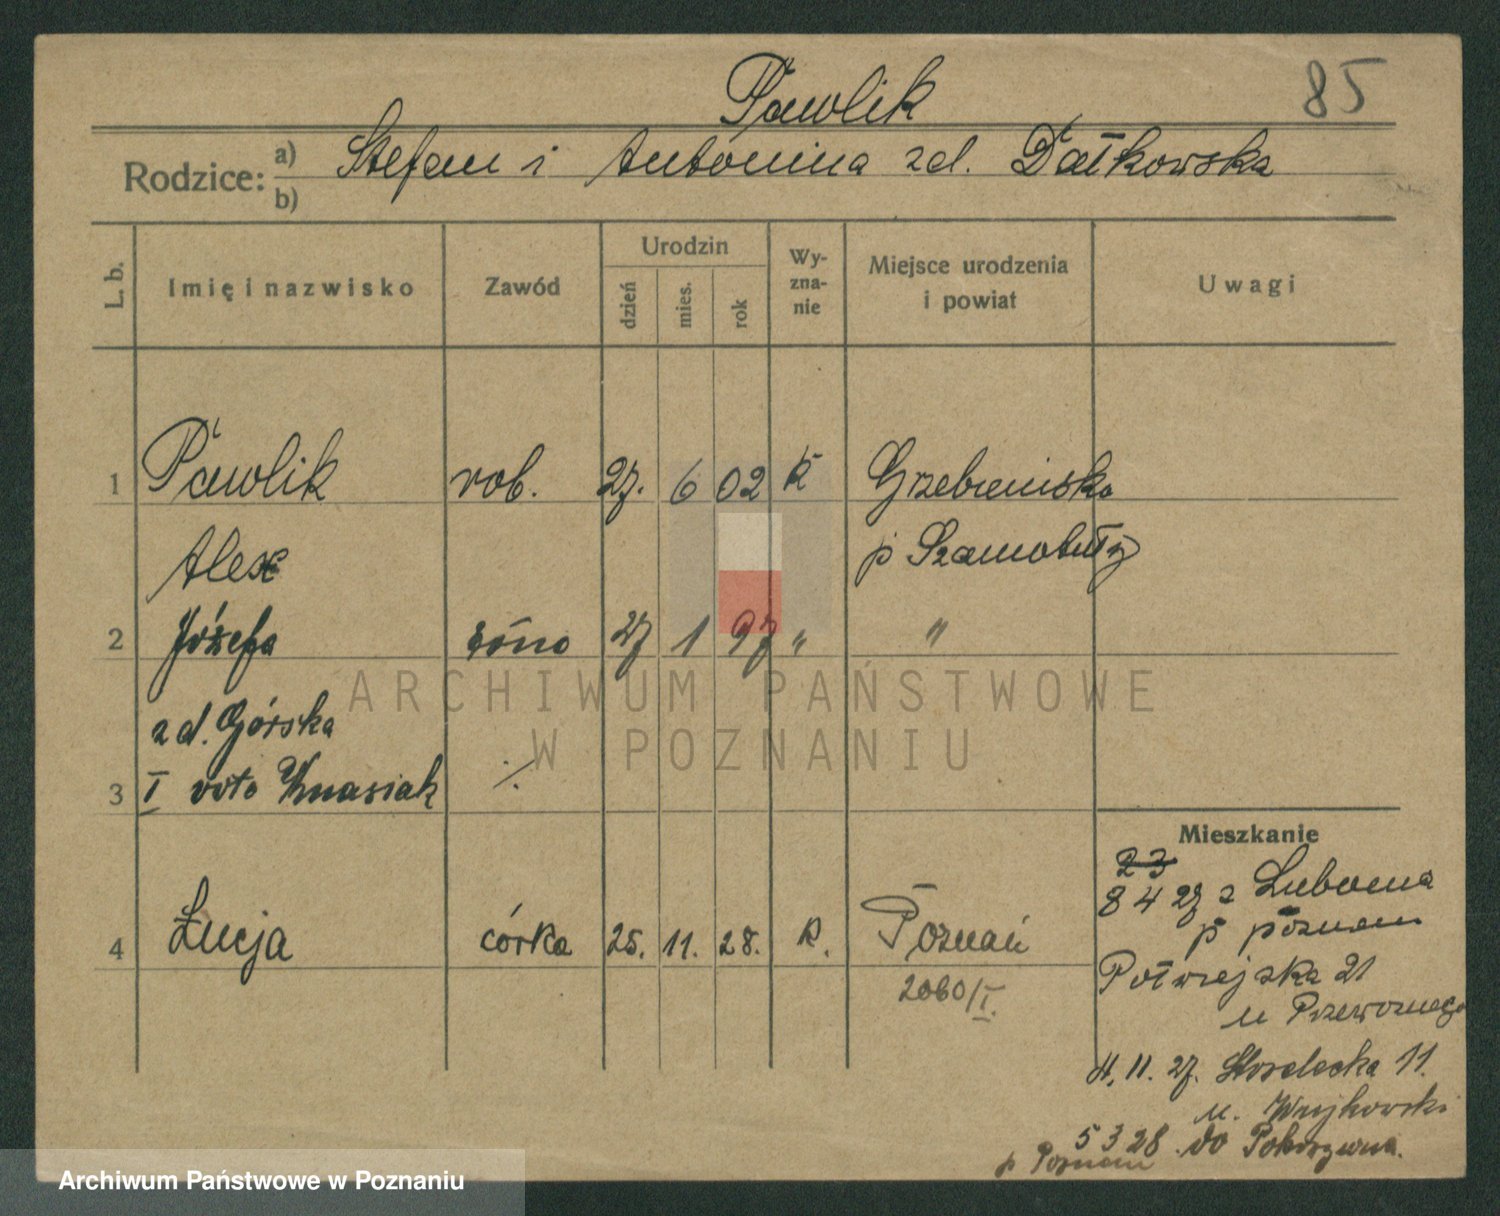 Pawlik 85
Rodzice: a) Stefan i Antonina zd. Dałkowska
b)
L. b. Imię i nazwisko Zawód Urodzin dzień mies. rok Wy-zna-nie Miejsce urodzenia i powiat Uwagi
1 Pawlik rob. 27. 6 02 k Grzebienisko
Alex p Szamotuły
2 Józefa żona 27 1 97 " "
zd. Górska
3 I voto Knasiak ./.
Mieszkanie
23
8 4 27 z Lubonia
p Poznań
4 Łucja córka 25. 11. 28. k. Poznań
2060/I.
Półwiejska 21
u Przewoznego
11. 27. Strzelecka 11.
u.
5 3 28 do
p Poznań
ARCHIWUM PAŃSTWOWE
W POZNANIU
Archiwum Państwowe w Poznaniu